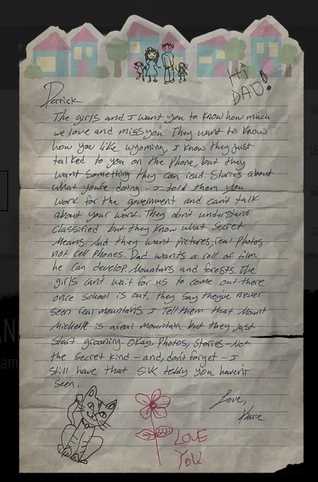 Hi
DAD!
Derrick
The girls and I want you to know how much
we love and miss you. They want to know
how you like Wyoming. I know they just
talked to you on the phone, but they
want something they can read. Stories about
what you're doing - I told them you
work for the government and can't talk
about your work. They don't understand
classified but they know what secret
means. And they want pictures, real photos,
not cell phones. Dad wants a roll of film
he can develop. Mountains and forests. The
girls can't wait for us to come out there
once school is out, they say they've never
seen real mountains. I tell them that Mount
Mitchell is a real mountain but they just
start groaning. Okay. Photos, Stories - Not
the secret kind - and don't forget - I
still have that silk teddy you haven't
seen.
Love,
LOVE
YOU